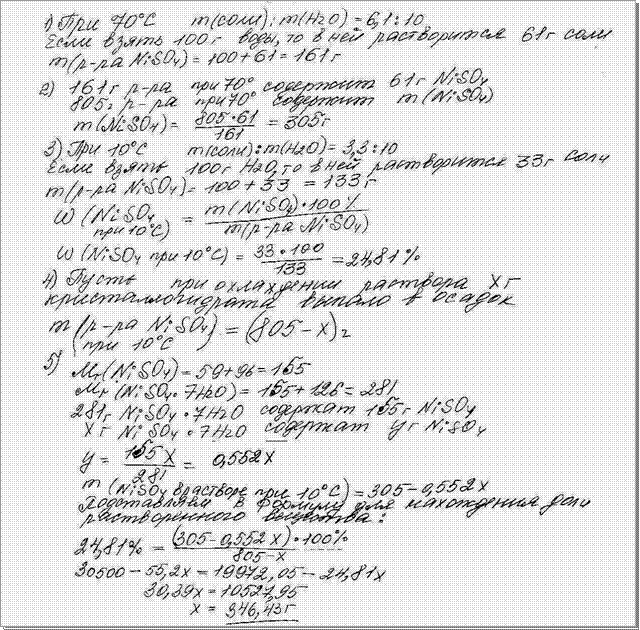 1) При 70°С m(соли):m(H2O) = 6,1:10
Если взять 100 г воды, то в ней растворится 61 г соли
m(р-ра NiSO4) = 100+61 = 161 г
2) 161 г р-ра при 70° содержит 61 г NiSO4
805 г р-ра при 70° содержит m(NiSO4)
m(NiSO4) = 805·61 / 161 = 305 г
3) При 10°С m(соли):m(H2O) = 3,3:10
Если взять 100 г H2O, то в ней растворится 33 г соли
m(р-ра NiSO4) = 100+33 = 133 г
W (NiSO4 при 10°С) = m(NiSO4)·100% / m(р-ра NiSO4)
W (NiSO4 при 10°С) = 33·100 / 133 = 24,81%
4) Пусть при охлаждении раствора X г
кристаллогидрата выпало в осадок
m (р-ра NiSO4 при 10°С) = (805-X) г
5) Mr(NiSO4) = 59+96 = 155
Mr(NiSO4·7H2O) = 155+126 = 281
281 г NiSO4·7H2O содержат 155 г NiSO4
X г NiSO4·7H2O содержат y г NiSO4
y = 155X / 281 = 0,552X
m (NiSO4 в растворе при 10°С) = 305-0,552X
Подставляем в формулу для нахождения доли
растворенного вещества:
24,81% = (305-0,552X)·100% / 805-X
30500-55,2X = 19972,05-24,81X
30,39X = 10527,95
X = 346,43 г